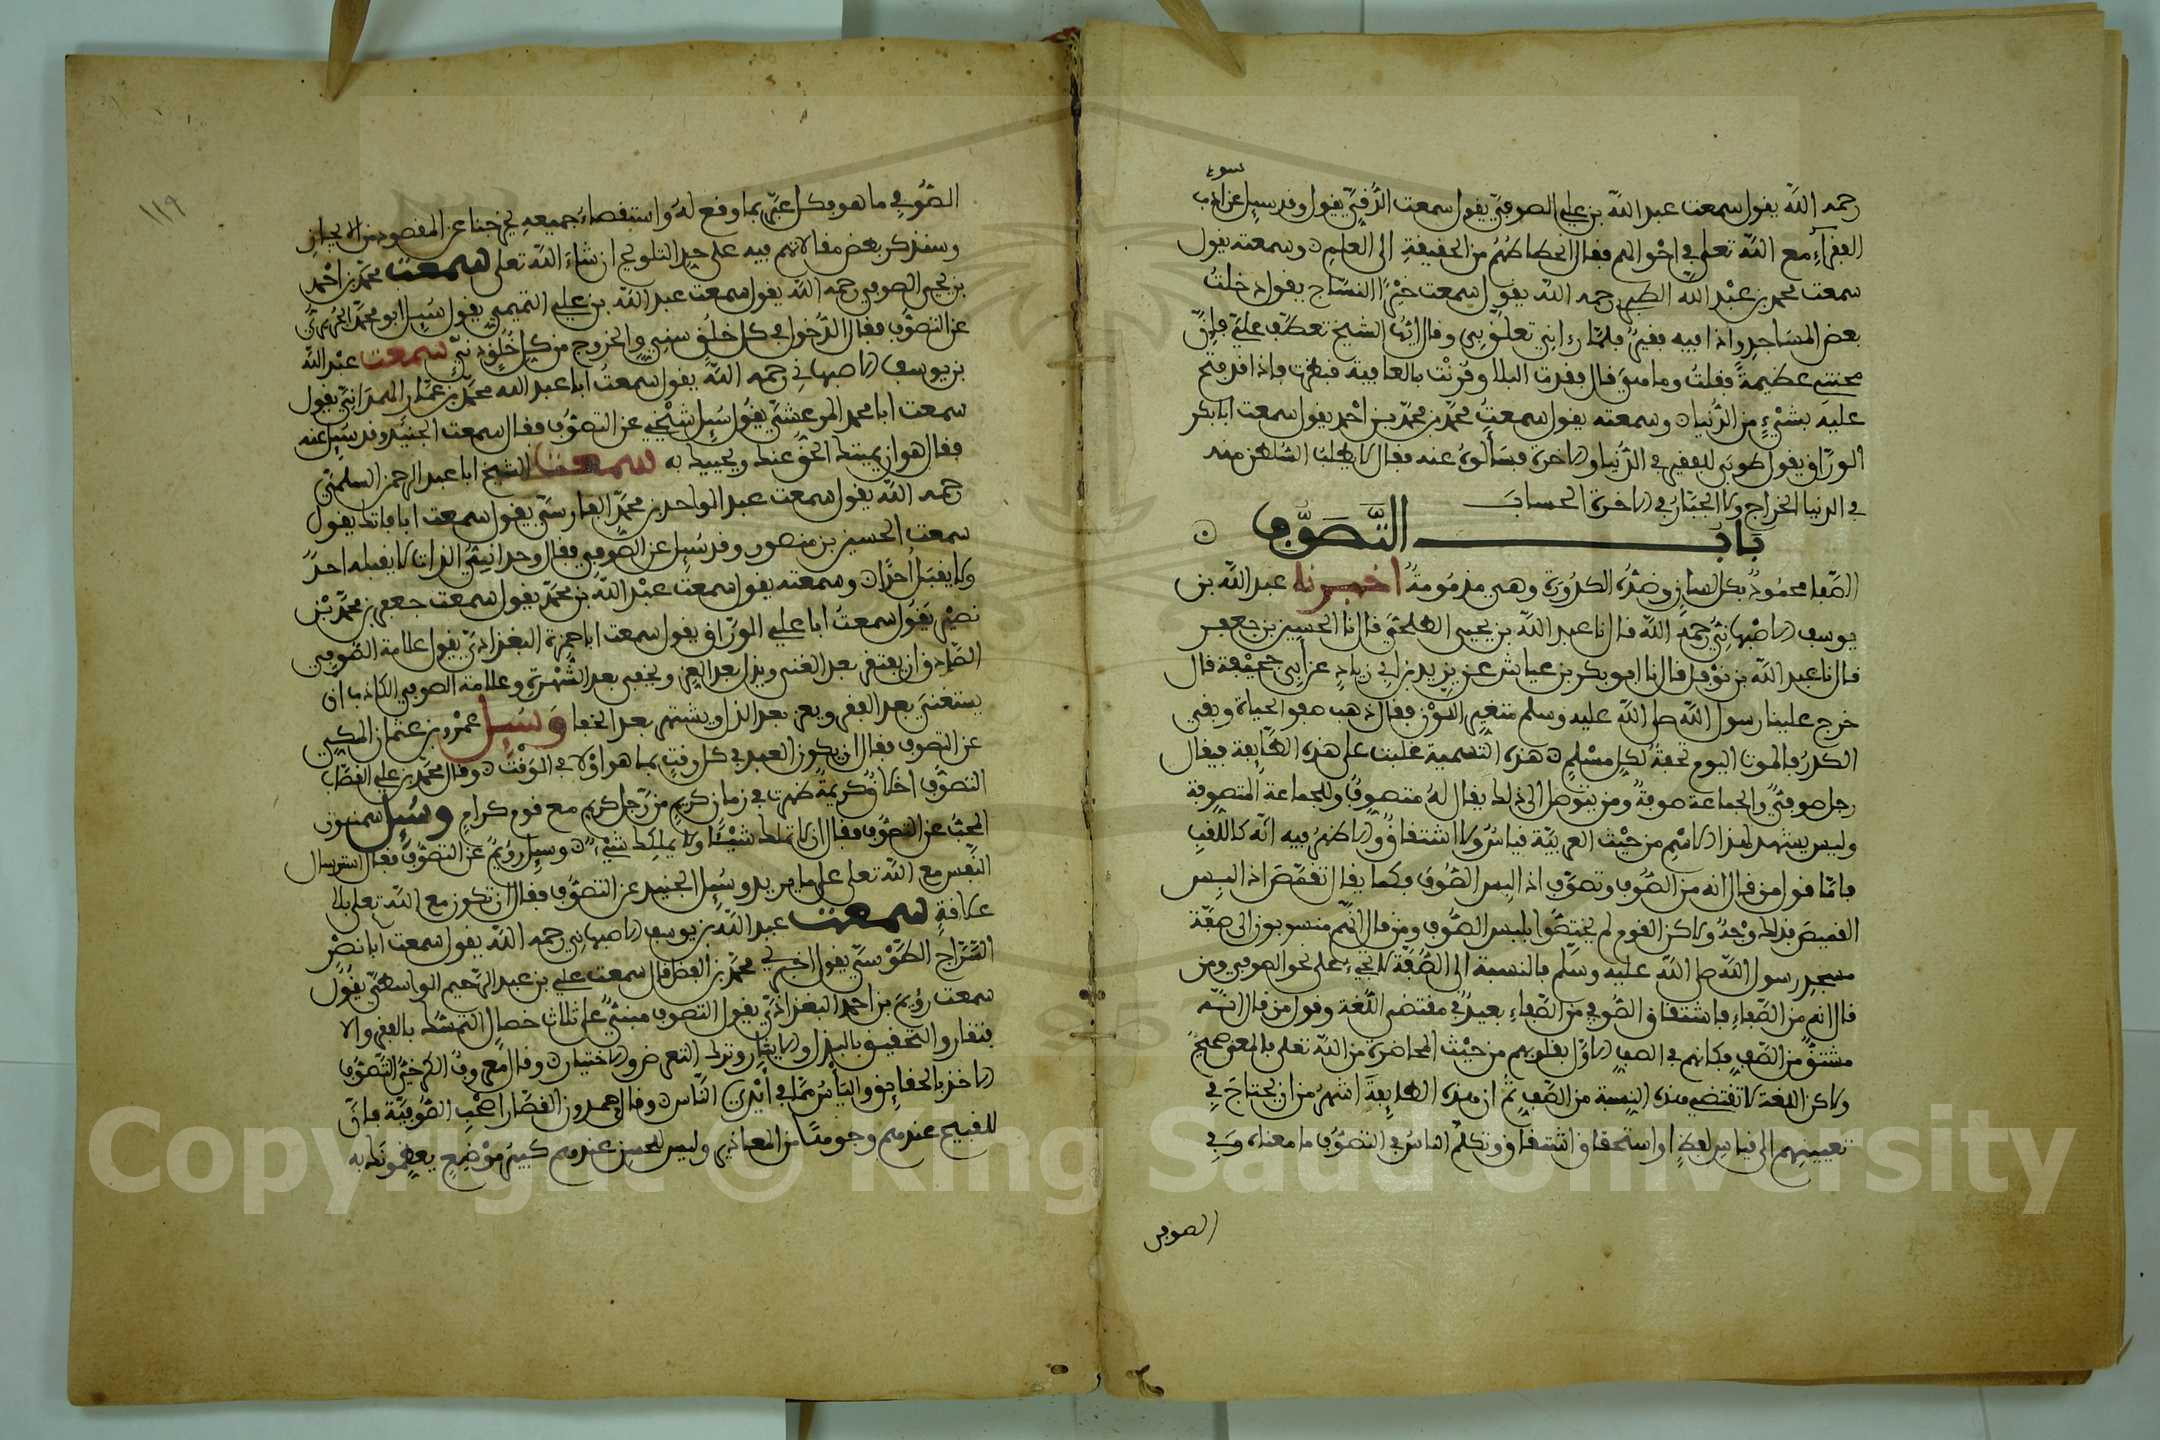 سوء
رحمه الله يقول سمعت عبد الله بن علي الصوفي يقول سمعت الدقي يقول وقد سيل عن ادب
الفقراء مع الله تعلى في احوالهم فقال انحطاطهم من الحقيقة الى العلم ن وسمعته يقول
سمعت محمد بن عبد الله الطبري رحمه الله يقول سمعت خيرا النساج يقول دخلت
بعض المساجد واذا فيه فقير فلما رءاني تعلق بي وقال ايها الشيخ تعطف علي فان
محنتي عظيمة فقلت وما هي قال فقدت البلا وقرنت بالعافية فنظرت فاذا قد فتح
عليه بشيء من الدنيا ن وسمعته يقول سمعت محمد بن محمد بن احمد يقول سمعت ابا بكر
الوراق يقول طوبى للفقير في الدنيا والاخرة فسألوه عنه فقال لا يطلب السلطن منه
في الدنيا الخراج ولا الجبار في الاخرة الحساب
باب التصوف ن
الصفا محمود بكل لسان وضده الكدورة وهي مذمومة اخبرنا عبد الله بن
يوسف الاصبهاني رحمه الله قال انا عبد الله بن يحيى الطلحي قال نا الحسين بن جعفر
قال نا عبد الله بن نوفل قال نا ابو بكر بن عياش عن يزيد بن ابي زياد عن ابي جحيفة قال
خرج علينا رسول الله صلى الله عليه وسلم متغير اللون فقال ذهب صفو الحياة وبقي
الكدر فالموت اليوم تحفة لكل مسلم ن هذه التسمية غلبت على هذه الطايفة فيقال
رجل صوفي والجماعة صوفية ومن يتوصل الى ذلك يقال له متصوف وللجماعة المتصوفة
وليس يشهد لهذا الاسم من حيث العربية قياس ولا اشتقاق والاظهر فيه انه كاللقب
فاما قول من قال انه من الصوف وتصوف اذا لبس الصوف فكما يقال تقمص اذا لبس
القميص فذلك وجه ولاكن القوم لم يختصوا بلبس الصوف ومن قال انهم منسوبون الى صفة
مسجد رسول الله صلى الله عليه وسلم فالنسبة الى الصفة لا تجيء على نحو الصوفي ومن
قال انه من الصفاء فاشتقاق الصوفي من الصفاء بعيد في مقتضى اللغة وقول من قال انه
مشتق من الصف فكانهم في الصف الاول بقلوبهم من حيث المحاضرة من الله تعلى فالمعنى صحيح
ولاكن اللغة لا تقتضي هذه النسبة من الصف ثم ان هذه الطايفة اشهر من ان يحتاج في
تعيينهم الى قياس لفظ او استحقاق اشتقاق وتكلم الناس في التصوف ما معناه وفي
الصوفي
١١٩
الصوفي ما هو فكل عبر بما وقع له واستقصاء جميعه يخرجنا عن المقصود من الايجاز
وسنذكر بعض مقالاتهم فيه على حد التلويح ان شاء الله تعلى سمعت محمد بن احمد
بن يحيى الصوفي رحمه الله يقول سمعت عبد الله بن علي التميمي يقول سيل ابو محمد الجريري
عن التصوف فقال الدخول في كل خلق سني والخروج من كل خلق دني سمعت عبد الله
بن يوسف الاصبهاني رحمه الله يقول سمعت ابا عبد الله محمد بن عمار الهمداني يقول
سمعت ابا محمد المرعشي يقول سيل شيخي عن التصوف فقال سمعت الجنيد وقد سيل عنه
فقال هو ان يميتك الحق عنك ويحييك به سمعت الشيخ ابا عبد الرحمن السلمي
رحمه الله يقول سمعت عبد الواحد بن محمد الفارسي يقول سمعت ابا فاتك يقول
سمعت الحسين بن منصور وقد سيل عن الصوفي فقال وحداني الذات لا يقبله احد
ولا يقبل احدا ن وسمعته يقول سمعت عبد الله بن محمد يقول سمعت جعفر بن محمد بن
نصير يقول سمعت ابا علي الوراق يقول سمعت ابا حمزة البغدادي يقول علامة الصوفي
الصادق ان يفتقر بعد الغنى ويذل بعد العز ويخفى بعد الشهرة وعلامة الصوفي الكاذب ان
يستغني بعد الفقر ويعز بعد الذل ويشتهر بعد الخفا وسيل عمرو بن عثمان المكي
عن التصوف فقال ان يكون العبد في كل وقت بما هو اولى في الوقت ن وقال محمد بن علي القصاب
التصوف اخلاق كريمة ظهرت في زمان كريم من رجل كريم مع قوم كرام وسيل سمنون
المحب عن التصوف فقال ان لا تملك شيئا ولا يملكك شيء ن وسيل رويم عن التصوف فقال استرسال
النفس مع الله تعلى على ما يريد وسيل الجنيد عن التصوف فقال ان تكون مع الله تعلى بلا
علاقة سمعت عبد الله بن يوسف الاصبهاني رحمه الله يقول سمعت ابا نصر
السراج الطوسي يقول اخبرني محمد بن الفضل قال سمعت علي بن عبد الرحيم الواسطي يقول
سمعت رويم بن احمد البغدادي يقول التصوف مبني على ثلاث خصال التمسك بالفقر والا
فتقار والتحقيق بالبذل والايثار وترك التعرض والاختيار ن وقال معروف الكرخي التصوف
الاخذ بالحقايق والياس مما في ايدي الناس ن وقال حمدون القصار اصحب الصوفية فان
للقبيح عندهم وجوها من المعاذير وليس للحسن عندهم كبير موضع يعظمونك به
Copyright © King Saud University